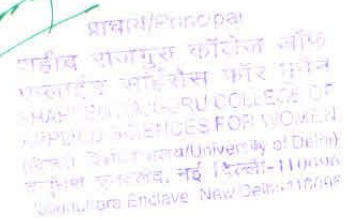 प्राचार्य/Principal
शहीद राजगुरु कॉलेज ऑफ
एप्लाइड साइंसेस फॉर विमेन
SHAHEED RAJGURU COLLEGE OF
APPLIED SCIENCES FOR WOMEN
(दिल्ली विश्वविद्यालय/University of Delhi)
वसुन्धरा एनक्लेव, नई दिल्ली-110096
Vasundhara Enclave New Delhi-110096